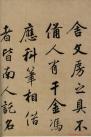 舍文房之具不
備人有千金馮
應科筆相借
者皆南人記名